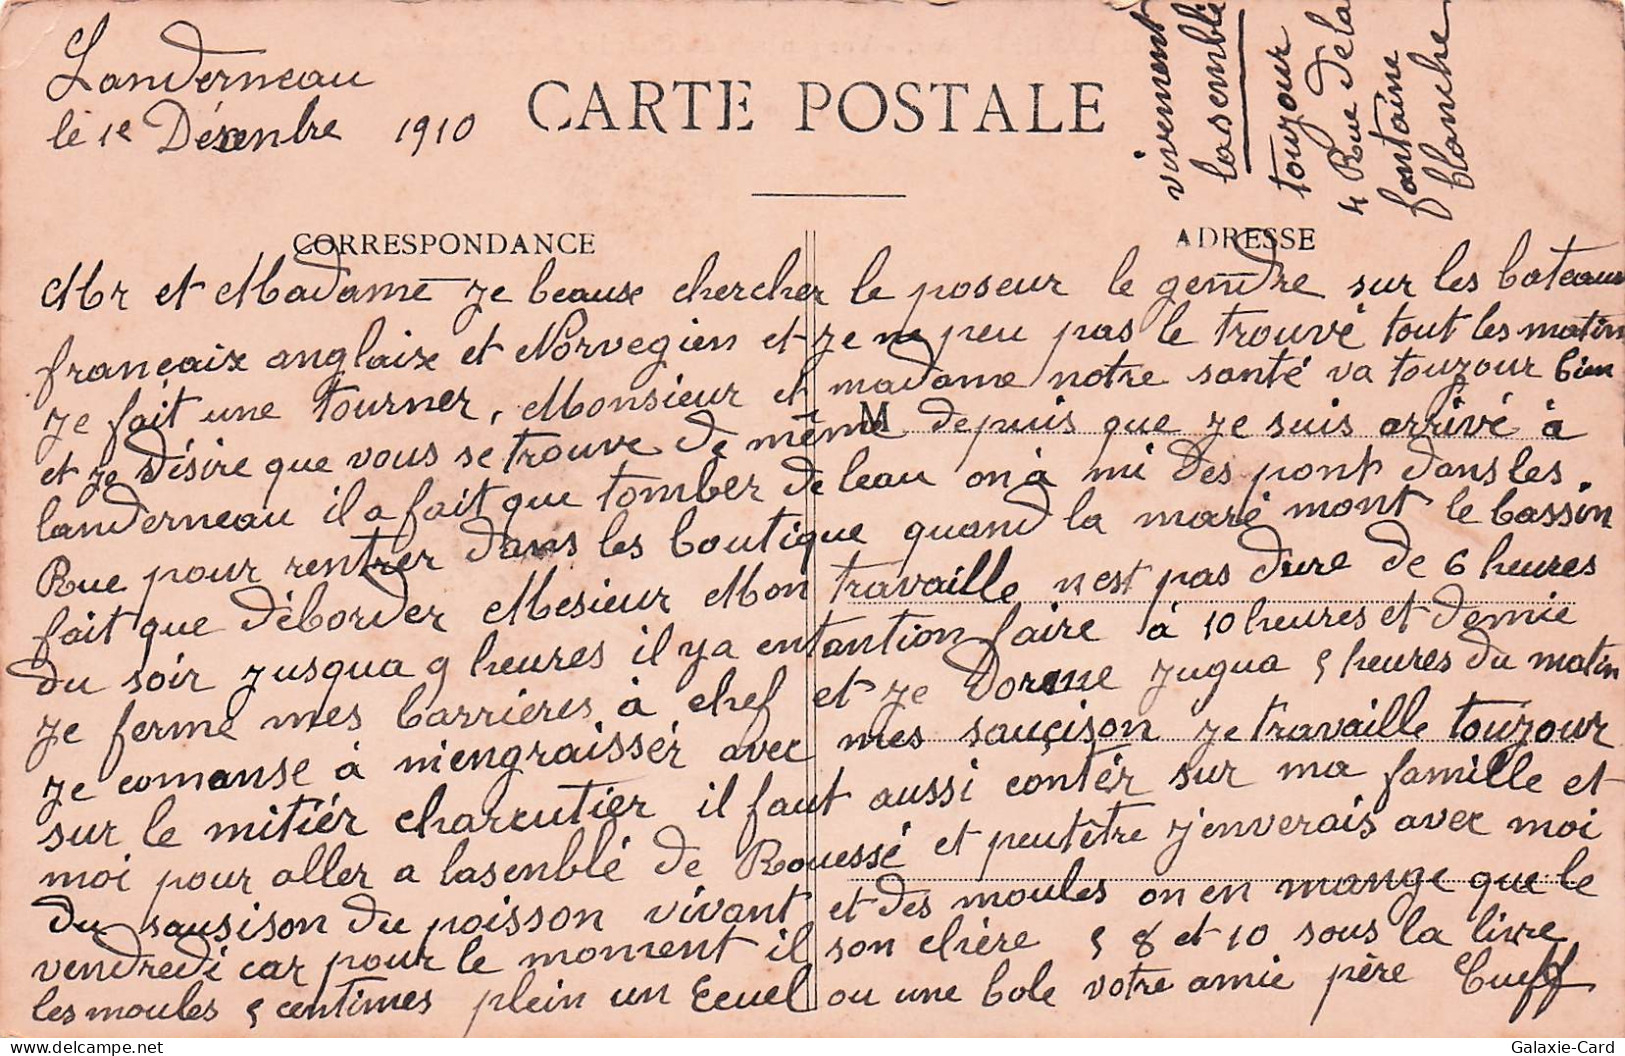 Landerneau
le 1e Désenbre 1910
CARTE POSTALE
vivement
lasemblé
touzour
4 Rue de la
fontaine
blanche
CORRESPONDANCE
ADRESSE
Mr et Madame je beause chercher le poseur le gendre sur les bateaux
françaix anglaix et Norvegien et je ne peu pas le trouvé tout les matin
je fait une tourner, Monsieur et madame notre santé va touzour bien
et je désire que vous se trouve de même M depuis que je suis arrivé à
landerneau il a fait que tomber de leau on à mi des pont dans les
Rue pour rentrer dans les boutique quand la maré mont le bassin
fait que déborder Mesieur Mon travaille nest pas dure de 6 heures
du soir jusqua 9 heures il ya entantion faire à 10 heures et demie
je ferme mes barrières à chef et je dorme jugua 5 heures du matin
je comanse à m'engraissér avec mes sauçison je travaille touzour
sur le mitiér charcutier il faut aussi contér sur ma famille et
moi pour aller a lasenblé de Rouessé et peutêtre j'enverais avec moi
du sausison du poisson vivant et des moules on en mange que le
vendredi car pour le moment il son chère 5 8 et 10 sous la livre
les moules 5 centimes plein un Ecuel ou une bole votre amie père Cueff
Galaxie-Card
www.delcampe.net